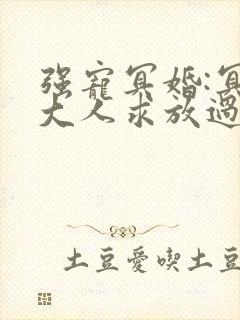 强寵冥婚:冥
大人求放過
土豆愛喫土豆